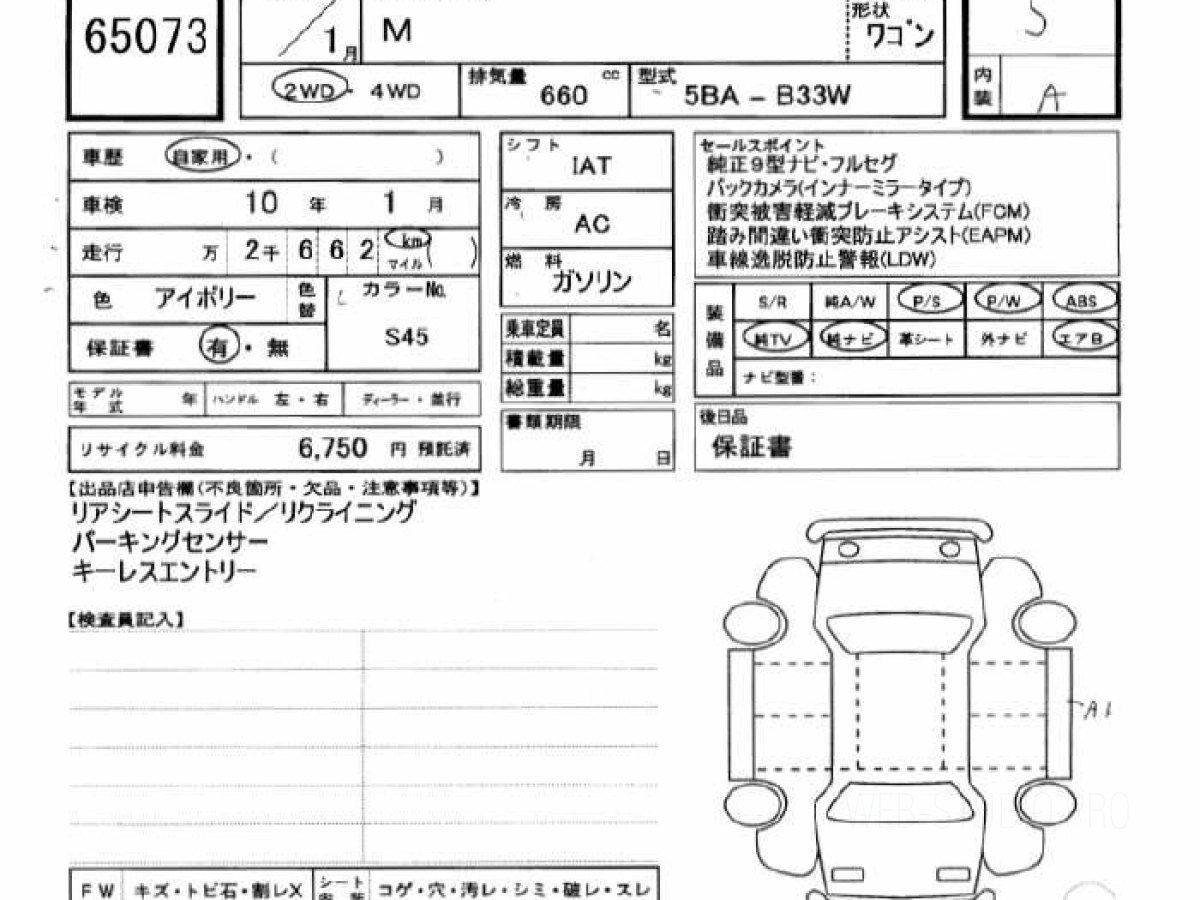 65073
1月
M
形状
ワゴン
S
2WD・4WD
排気量 660 cc
型式 5BA－B33W
内装 A
車歴 自家用・（ ）
車検 10 年 1 月
走行 万 2千 6 6 2 km マイル（ ）
色 アイボリー 色替
カラーNo. S45
保証書 有・無
モデル年式 年 ハンドル 左・右 ディーラー・並行
リサイクル料金 6,750 円 預託済
シフト IAT
冷房 AC
燃料 ガソリン
乗車定員 名
積載量 kg
総重量 kg
書類期限
月 日
セールスポイント
純正9型ナビ・フルセグ
バックカメラ(インナーミラータイプ)
衝突被害軽減ブレーキシステム(FCM)
踏み間違い衝突防止アシスト(EAPM)
車線逸脱防止警報(LDW)
装備品
S/R 純A/W P/S P/W ABS
純TV 純ナビ 革シート 外ナビ エアB
ナビ型番：
後日品
保証書
【出品店申告欄(不良箇所・欠品・注意事項等)】
リアシートスライド／リクライニング
パーキングセンサー
キーレスエントリー
【検査員記入】
A1
FW キズ・トビ石・割レX シート内装 コゲ・穴・汚レ・シミ・破レ・スレ